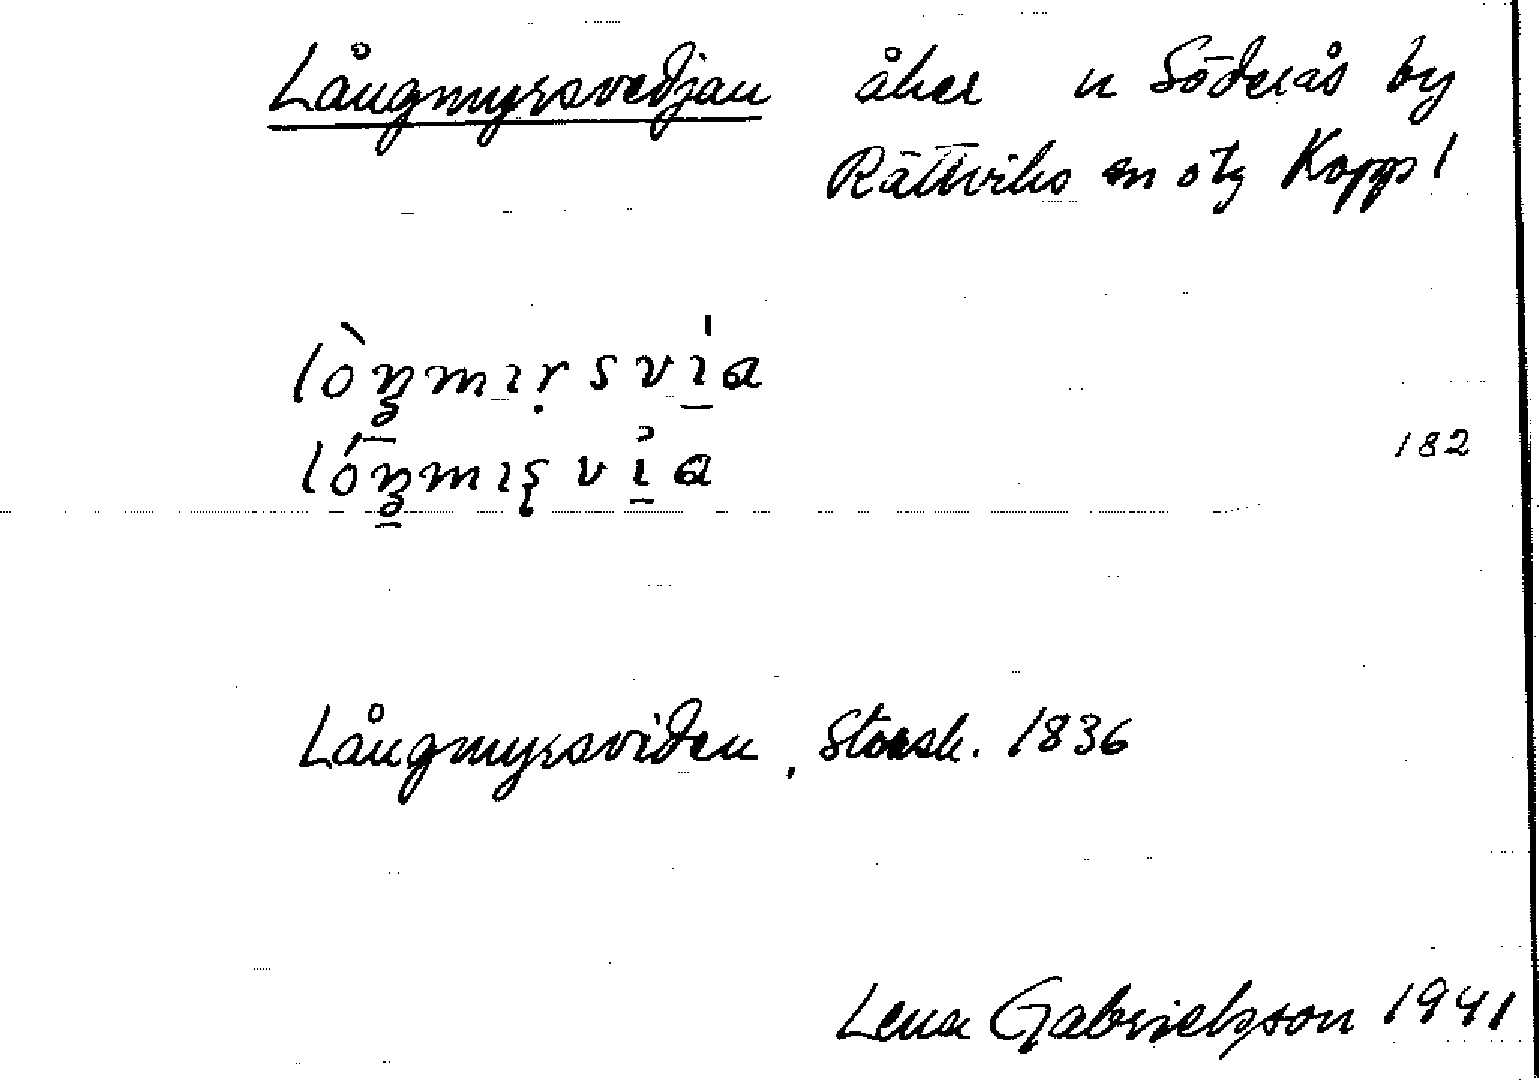 Långmyrsvedjan åker n Söderås by
Rättviks sn o tg Kopp l
lòŋmırsvia
lóŋmıʂ via
182
Långmyrsviden, Storsk. 1836
Lena Gabrielsson 1941